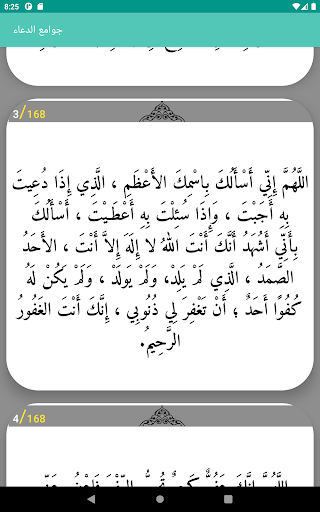 8:25
جوامع الدعاء
3/168
اللَّهُمَّ إِنِّي أَسْأَلُكَ بِاسْمِكَ الأَعْظَمِ ، الَّذِي إِذَا دُعِيتَ
بِهِ أَجَبْتَ ، وَإِذَا سُئِلْتَ بِهِ أَعْطَيْتَ ، أَسْأَلُكَ
بِأَنِّي أَشْهَدُ أَنَّكَ أَنْتَ اللهُ لا إِلَهَ إِلاَّ أَنْتَ ، الأَحَدُ
الصَّمَدُ ، الَّذِي لَمْ يَلِدْ، وَلَمْ يُولَدْ ، وَلَمْ يَكُنْ لَهُ
كُفُوًا أَحَدٌ ؛ أَنْ تَغْفِرَ لِي ذُنُوبِي ، إِنَّكَ أَنْتَ الغَفُورُ
الرَّحِيمُ.
4/168